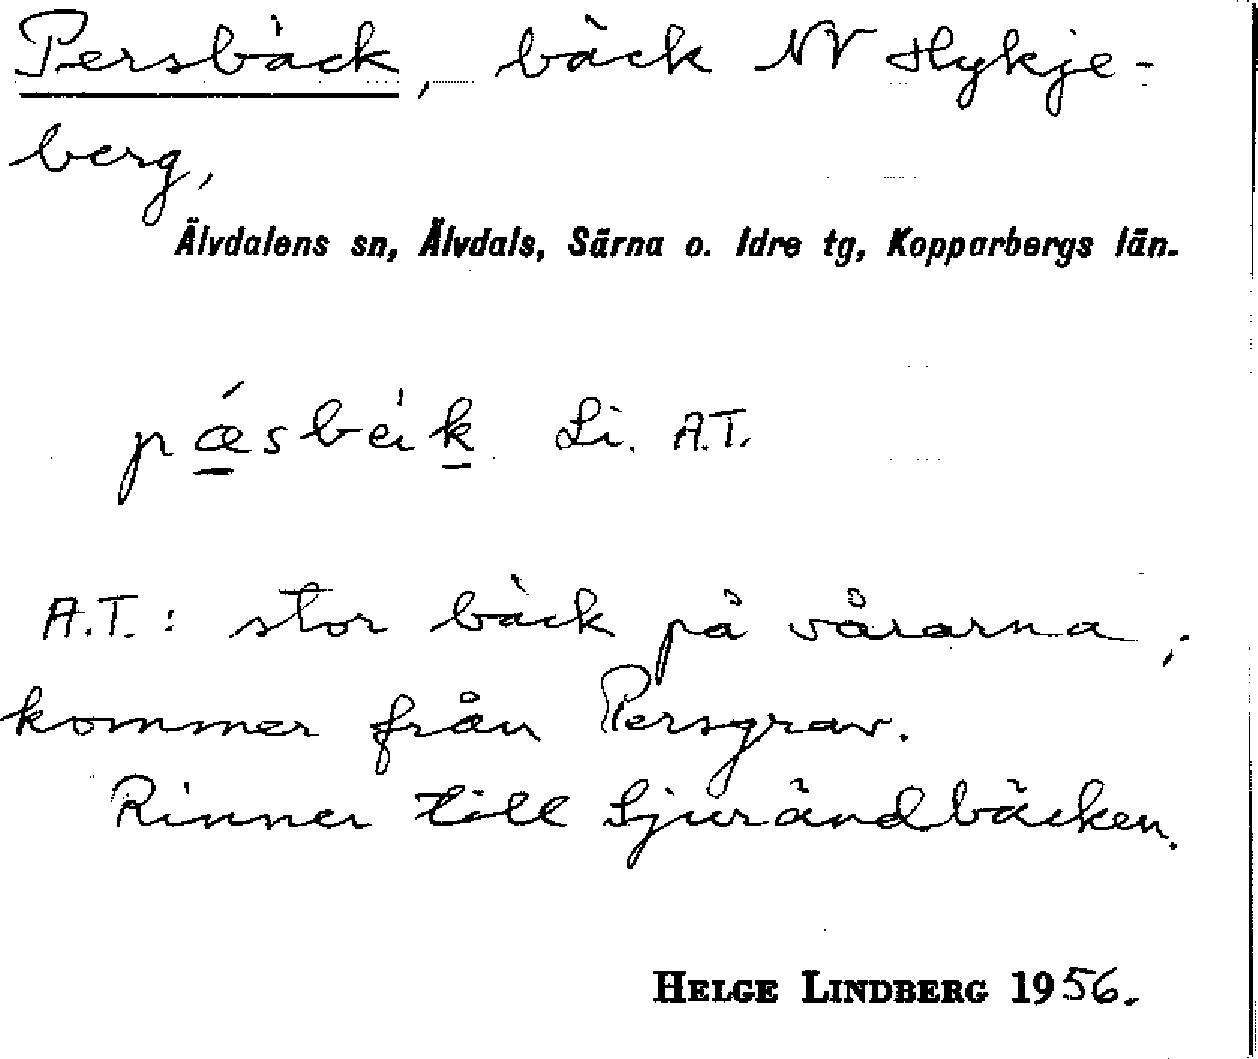 Persbäck, bäck NV Hykje-
berg,
Älvdalens sn, Älvdals, Särna o. Idre tg, Kopparbergs län.
pǽsbèik Li. A.T.
A.T.: stor bäck på vårarna,
kommer från Persgrav.
Rinner till Sjurändbäcken.
HELGE LINDBERG 1956.